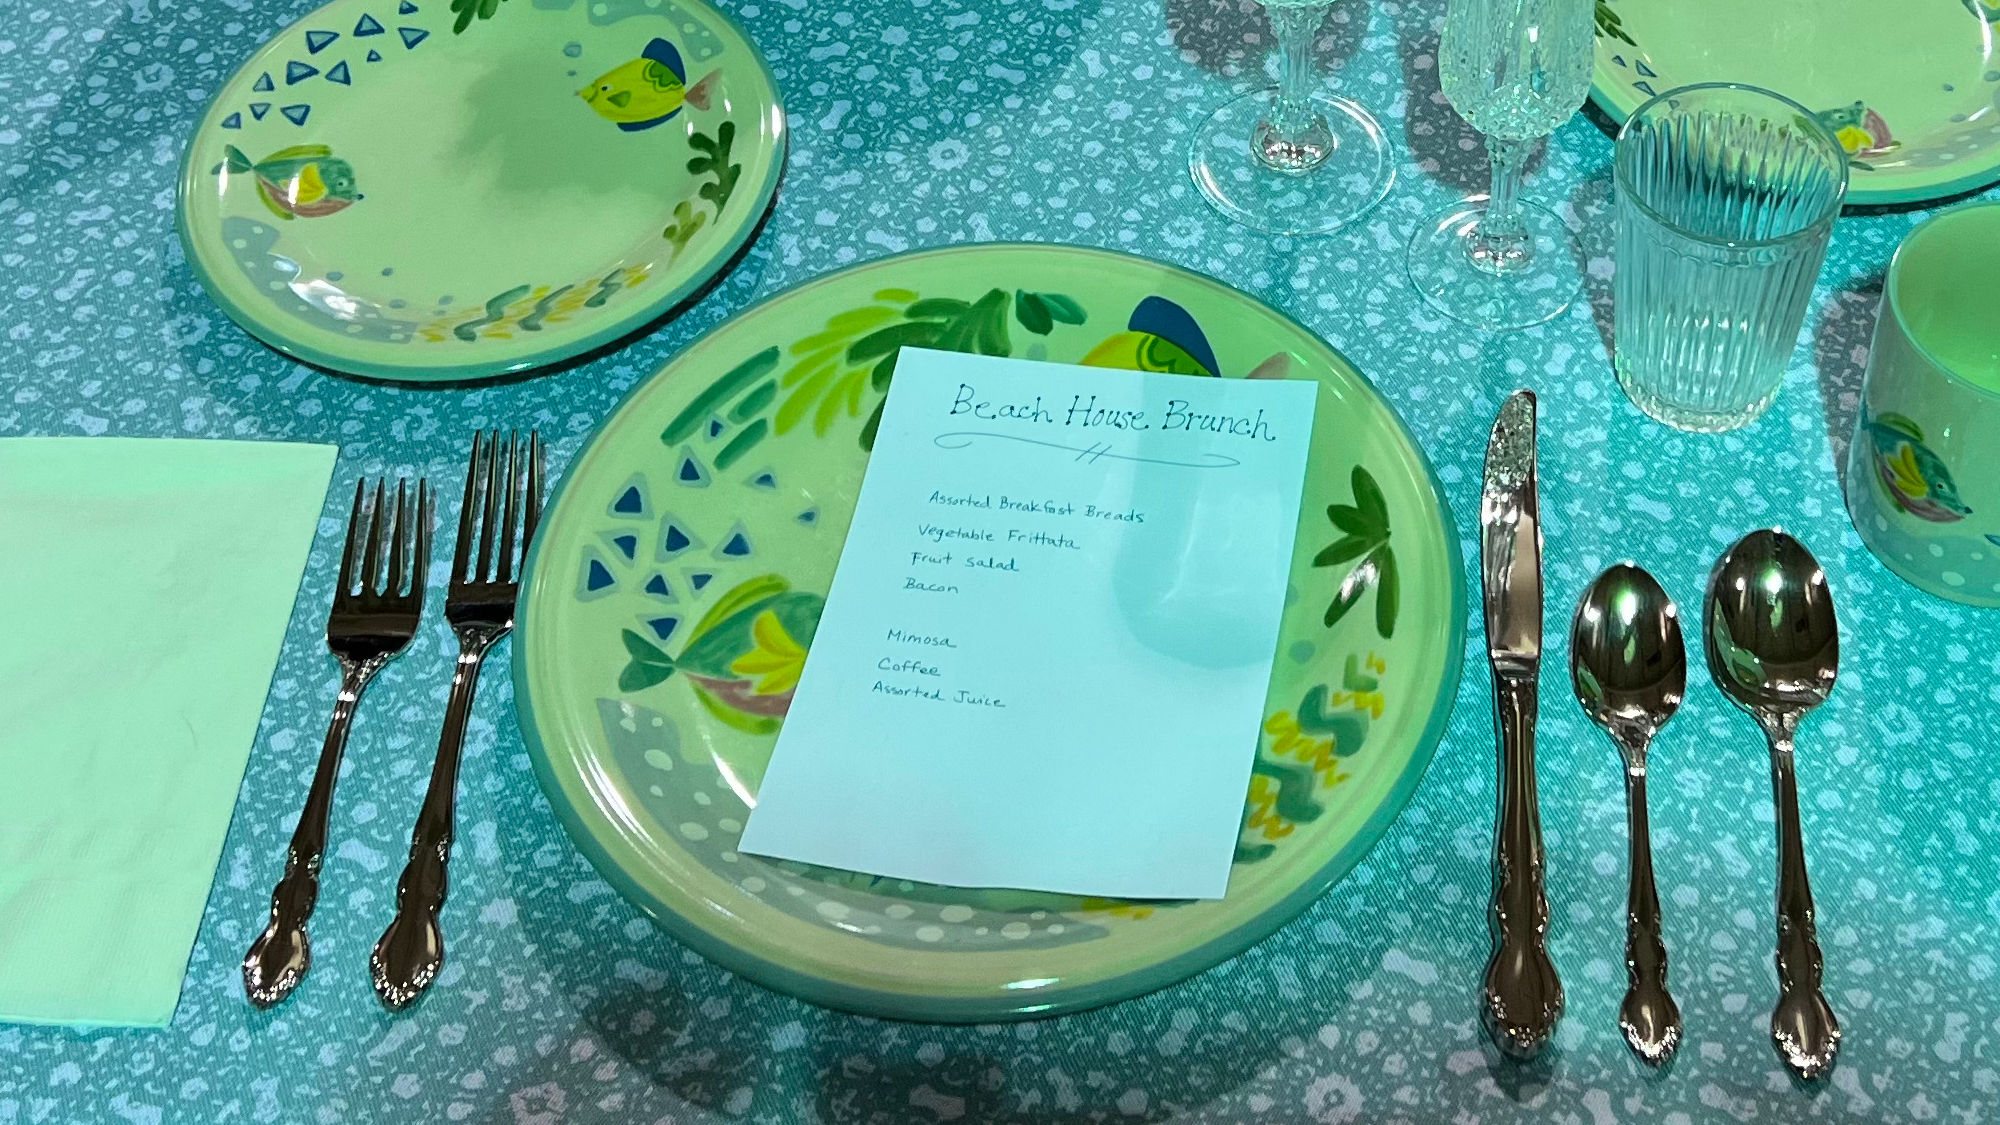 Beach House Brunch
Assorted Breakfast Breads
Vegetable Frittata
Fruit Salad
Bacon
Mimosa
Coffee
Assorted Juice